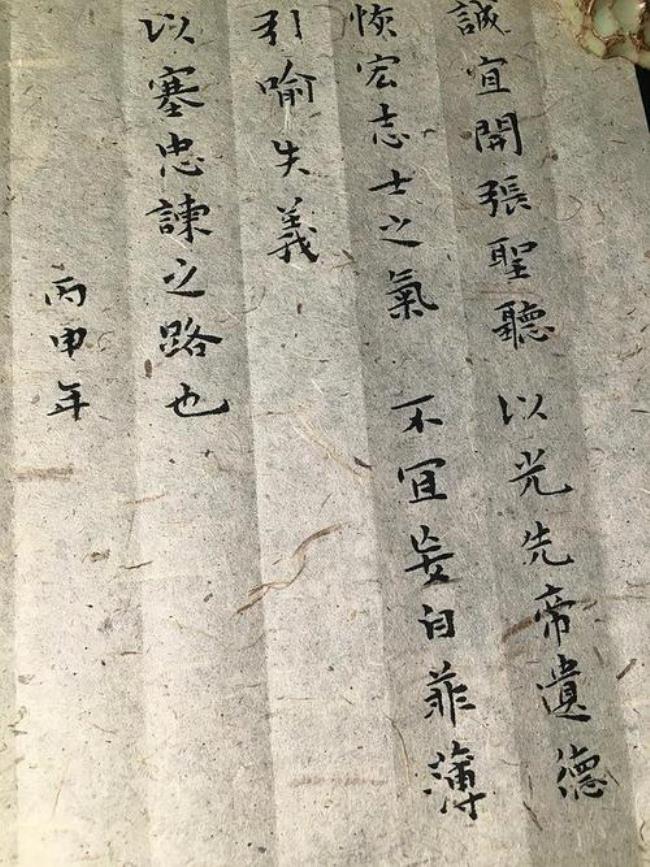 誠宜開張聖聽 以光先帝遺德
恢宏志士之氣 不宜妄自菲薄
引喻失義
以塞忠諫之路也
丙申年